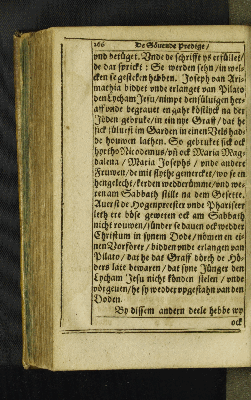 266 De Sövende Predige/
vnd betüget. Vnde de schrifft ys erfüllet/
de dar sprickt: Se werden sehn/in wel-
cken se gesteken hebben. Joseph van Ari-
mathia biddet vnde erlanget van Pilato
den Lycham Jesu/nimpt den sülvigen her-
aff vnde begrauet en gahr köstlyck na der
Jöden gebruke/in ein nye Graff/dat he
sick sülvest im Garden in einen Vels hadde
houwen lathen. So gebruket sick ock
hyrtho Nicodemus/vñ ock Maria Mag-
dalena/Maria Josephs/vnde andere
Fruwen/de mit flythe gemercket/wo se en
hengelecht/kerden wedderümme/vnd we-
ren am Sabbath stille na dem Gesette.
Auerst de Hogenprester vnde Phariseer
leth ere böse geweten ock am Sabbath
nicht rouwen/sünder se dauen ock wedder
Christum in synem Dode/nömen en ei-
nen Vorförer/bidden vnde erlangen van
Pilato/dat he das Graff dörch de Hö-
ders late bewaren/dat syne Jünger den
Lycham Jesu nicht könden stelen/vnde
vörgeuen/he sy wedder vpgestahn van den
Doden.
By dissem andern deele hebbe wy
ock